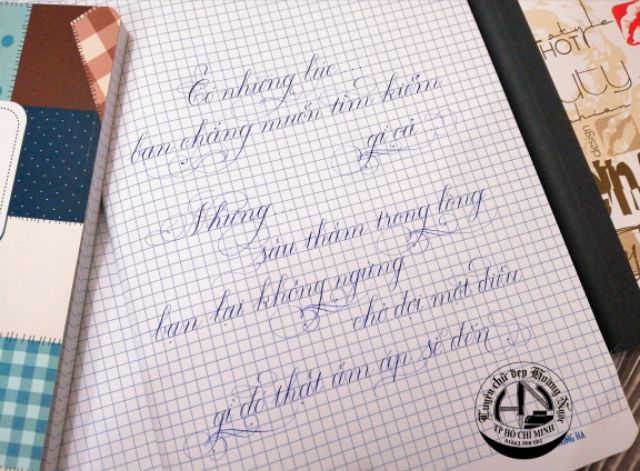 Có những lúc ...
bạn chẳng muốn tìm kiếm
gì cả
Nhưng ..
sâu thẳm trong lòng
bạn lại không ngừng
chờ đợi một điều
gì đó thật ấm áp sẽ đến
Luyện chữ đẹp Hoàng Ngọc
TP HỒ CHÍ MINH
design